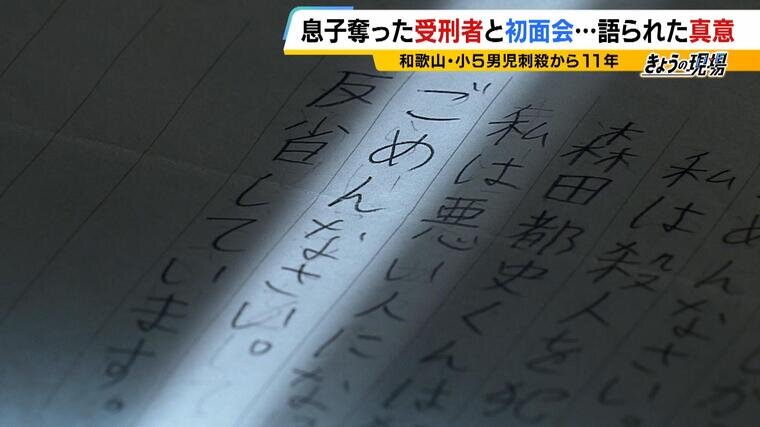 息子奪った受刑者と初面会…語られた真意
和歌山・小5男児刺殺から11年
きょうの現場
めんなさい。
私は殺人を犯
森田都史くんは
私は悪い人にな
ごめんなさい。
反省しています。